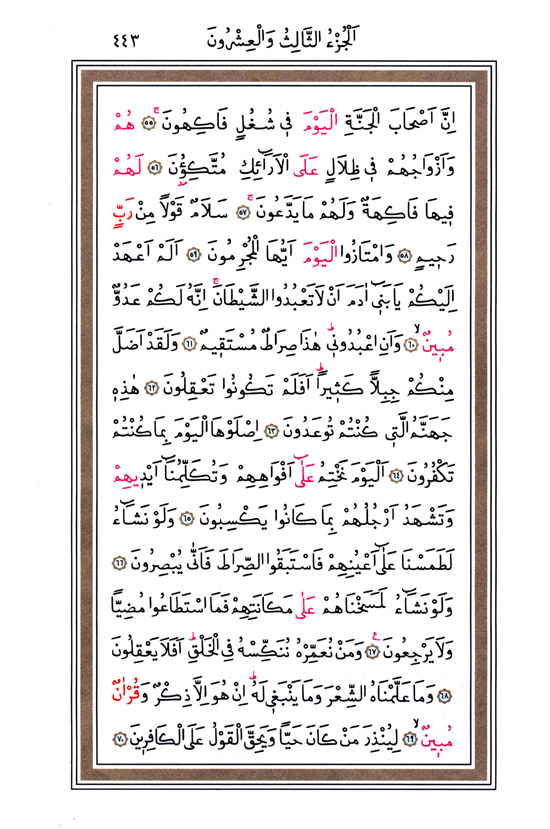 اَلْجُزْءُ الثَّالِثُ وَالْعِشْرُونَ ٤٤٣
اِنَّ اَصْحَابَ الْجَنَّةِ الْيَوْمَ ف۪ي شُغُلٍ فَاكِهُونَۚ ﴿٥٥﴾ هُمْ
وَاَزْوَاجُهُمْ ف۪ي ظِلَالٍ عَلَى الْاَرَٓائِكِ مُتَّكِؤُ۫نَ ﴿٥٦﴾ لَهُمْ
ف۪يهَا فَاكِهَةٌ وَلَهُمْ مَا يَدَّعُونَۚ ﴿٥٧﴾ سَلَامٌ قَوْلًا مِنْ رَبٍّ
رَح۪يمٍ ﴿٥٨﴾ وَامْتَازُوا الْيَوْمَ اَيُّهَا الْمُجْرِمُونَ ﴿٥٩﴾ اَلَمْ اَعْهَدْ
اِلَيْكُمْ يَا بَن۪ٓي اٰدَمَ اَنْ لَا تَعْبُدُوا الشَّيْطَانَۚ اِنَّهُ لَكُمْ عَدُوٌّ
مُب۪ينٌۙ ﴿٦٠﴾ وَاَنِ اعْبُدُون۪يۜ هٰذَا صِرَاطٌ مُسْتَق۪يمٌ ﴿٦١﴾ وَلَقَدْ اَضَلَّ
مِنْكُمْ جِبِلًّا كَث۪يرًاۜ اَفَلَمْ تَكُونُوا تَعْقِلُونَ ﴿٦٢﴾ هٰذِه۪
جَهَنَّمُ الَّت۪ي كُنْتُمْ تُوعَدُونَ ﴿٦٣﴾ اِصْلَوْهَا الْيَوْمَ بِمَا كُنْتُمْ
تَكْفُرُونَ ﴿٦٤﴾ اَلْيَوْمَ نَخْتِمُ عَلٰٓى اَفْوَاهِهِمْ وَتُكَلِّمُنَٓا اَيْد۪يهِمْ
وَتَشْهَدُ اَرْجُلُهُمْ بِمَا كَانُوا يَكْسِبُونَ ﴿٦٥﴾ وَلَوْ نَشَٓاءُ
لَطَمَسْنَا عَلٰٓى اَعْيُنِهِمْ فَاسْتَبَقُوا الصِّرَاطَ فَاَنّٰى يُبْصِرُونَ ﴿٦٦﴾
وَلَوْ نَشَٓاءُ لَمَسَخْنَاهُمْ عَلٰى مَكَانَتِهِمْ فَمَا اسْتَطَاعُوا مُضِيًّا
وَلَا يَرْجِعُونَ۟ ﴿٦٧﴾ وَمَنْ نُعَمِّرْهُ نُنَكِّسْهُ فِي الْخَلْقِۜ اَفَلَا يَعْقِلُونَ
﴿٦٨﴾ وَمَا عَلَّمْنَاهُ الشِّعْرَ وَمَا يَنْبَغ۪ي لَهُۜ اِنْ هُوَ اِلَّا ذِكْرٌ وَقُرْاٰنٌ
مُب۪ينٌۙ ﴿٦٩﴾ لِيُنْذِرَ مَنْ كَانَ حَيًّا وَيَحِقَّ الْقَوْلُ عَلَى الْكَافِر۪ينَ ﴿٧٠﴾